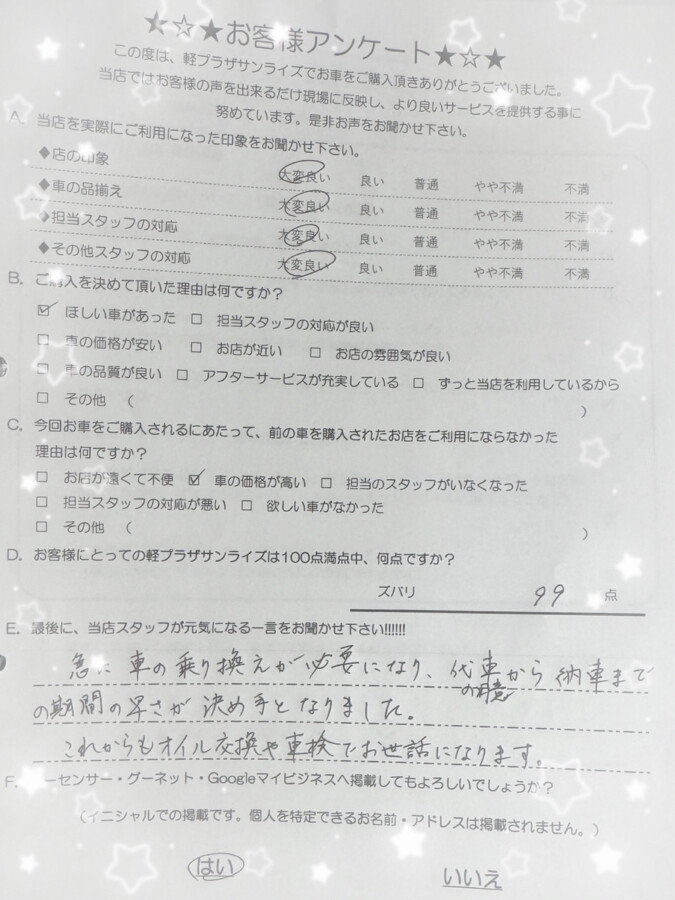 ★☆★お客様アンケート★☆★
この度は、軽プラザサンライズでお車をご購入頂きありがとうございました。
当店ではお客様の声を出来るだけ現場に反映し、より良いサービスを提供する事に
努めています。是非お声をお聞かせ下さい。
A. 当店を実際にご利用になった印象をお聞かせ下さい。
◆店の印象 大変良い 良い 普通 やや不満 不満
◆車の品揃え 大変良い 良い 普通 やや不満 不満
◆担当スタッフの対応 大変良い 良い 普通 やや不満 不満
◆その他スタッフの対応 大変良い 良い 普通 やや不満 不満
B. ご購入を決めて頂いた理由は何ですか？
☑ ほしい車があった □ 担当スタッフの対応が良い
□ 車の価格が安い □ お店が近い □ お店の雰囲気が良い
□ 車の品質が良い □ アフターサービスが充実している □ ずっと当店を利用しているから
□ その他 （ ）
C. 今回お車をご購入されるにあたって、前の車を購入されたお店をご利用にならなかった
理由は何ですか？
□ お店が遠くて不便 ☑ 車の価格が高い □ 担当のスタッフがいなくなった
□ 担当スタッフの対応が悪い □ 欲しい車がなかった
□ その他 （ ）
D. お客様にとっての軽プラザサンライズは100点満点中、何点ですか？
ズバリ 99 点
E. 最後に、当店スタッフが元気になる一言をお聞かせ下さい!!!!!!
急に車の乗り換えが必要になり、代車の用意から納車まで
の期間の早さが決め手となりました。
これからもオイル交換や車検でお世話になります。
F. ーセンサー・グーネット・Googleマイビジネスへ掲載してもよろしいでしょうか？
（イニシャルでの掲載です。個人を特定できるお名前・アドレスは掲載されません。）
はい いいえ